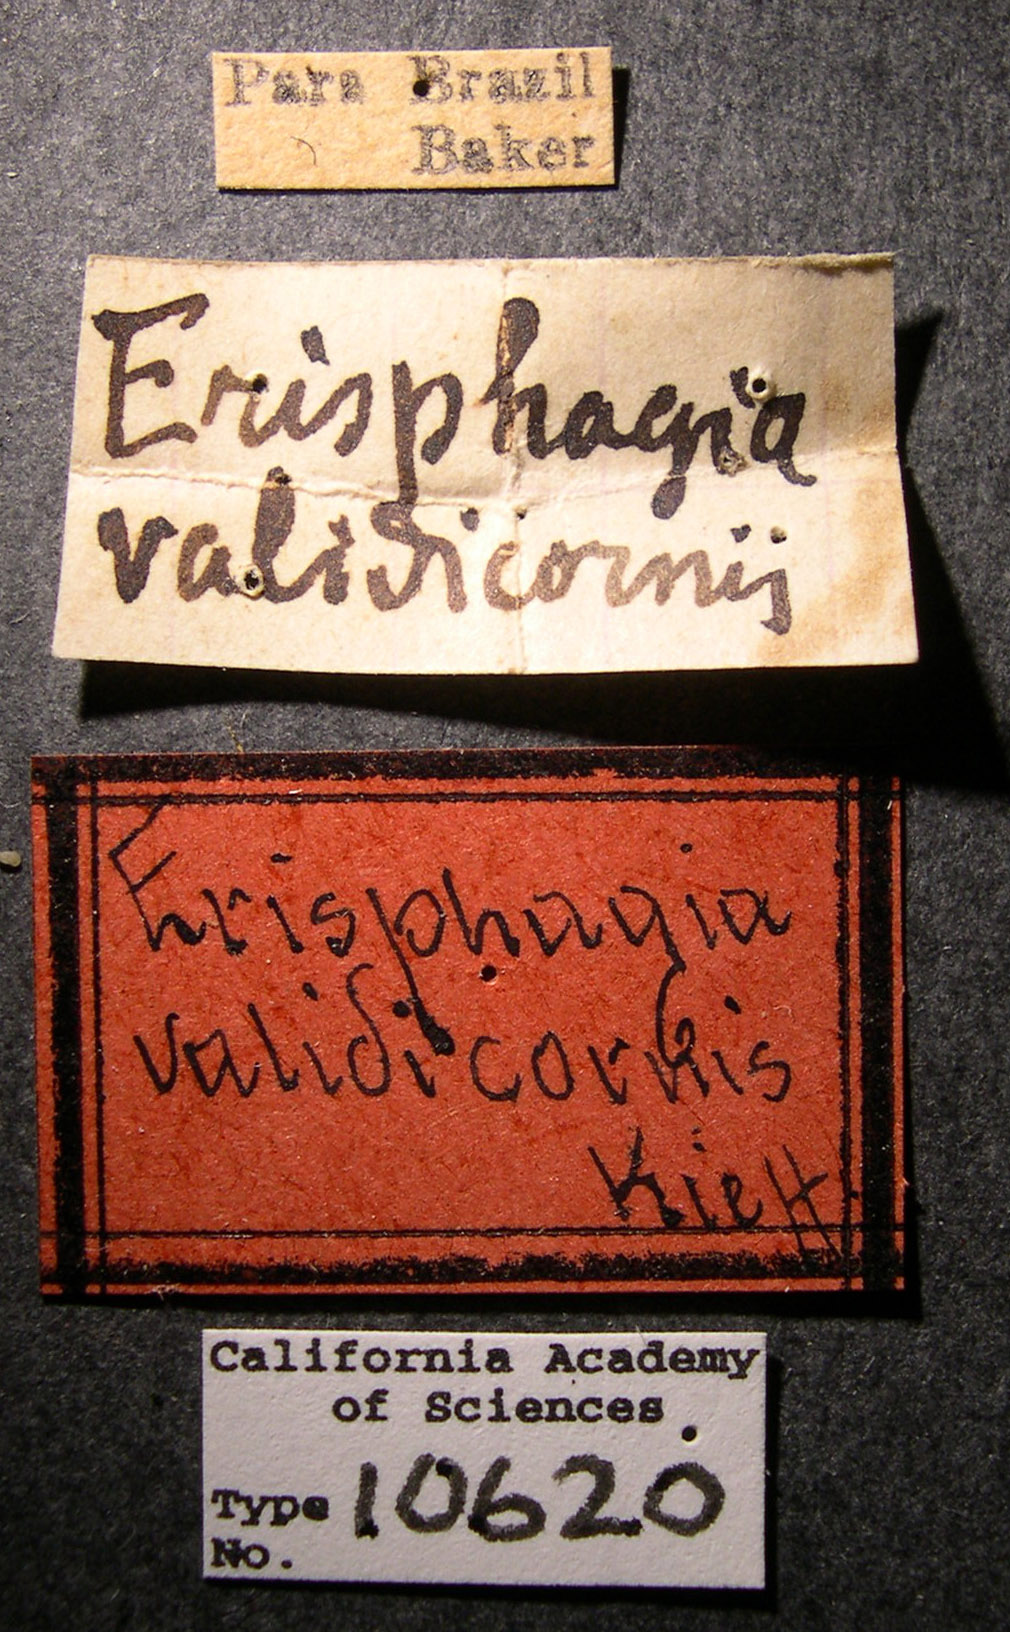 Para Brazil
Baker
Erisphagia
validicornis
Erisphagia
validicornis
Kieff
California Academy
of Sciences
Type
No. 10620